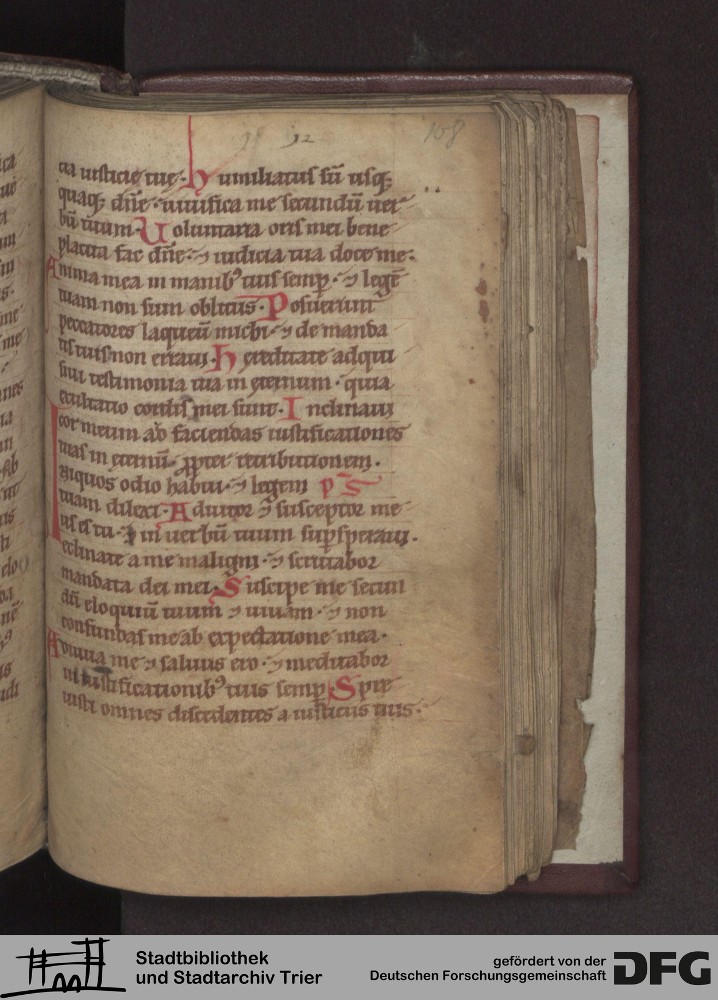 108
92
cia iusticie tue · humiliatus sū usq;
quaq; dn̄e · uiuifica me secundū uer
bū tuum · Uoluntaria oris mei bene
placita fac dn̄e · ⁊ iudicia tua doce me ·
Anima mea in manib⁹ tuis semp̄ · ⁊ legē
tuam non sum oblitus · Posuerunt
peccatores laqueū michi · ⁊ de manda
tis tuis non erraui · Hereditate adqui
siui testimonia tua in eternum · quia
exultatio cordis mei sunt · Inclinaui
cor meum ab faciendas iustificationes
tuas in eternū · ꝓpter retributionem ·
Iniquos odio habui · ⁊ legem ps̄
tuam dilexi · Adiutor ⁊ susceptor me
us es tu · ⁊ in uerbū tuum sup̄speraui ·
eclinate a me maligni · ⁊ scrutabor
mandata dei mei · Suscipe me secun
dū eloquiū tuum ⁊ uiuam · ⁊ non
confundas me ab expectatione mea ·
Adiuua me ⁊ saluus ero · ⁊ meditabor
in iustificationib⁹ tuis semp̄ Spre
uisti omnes discedentes a iusticiis tuis ·
Stadtbibliothek
und Stadtarchiv Trier
gefördert von der
Deutschen Forschungsgemeinschaft
DFG